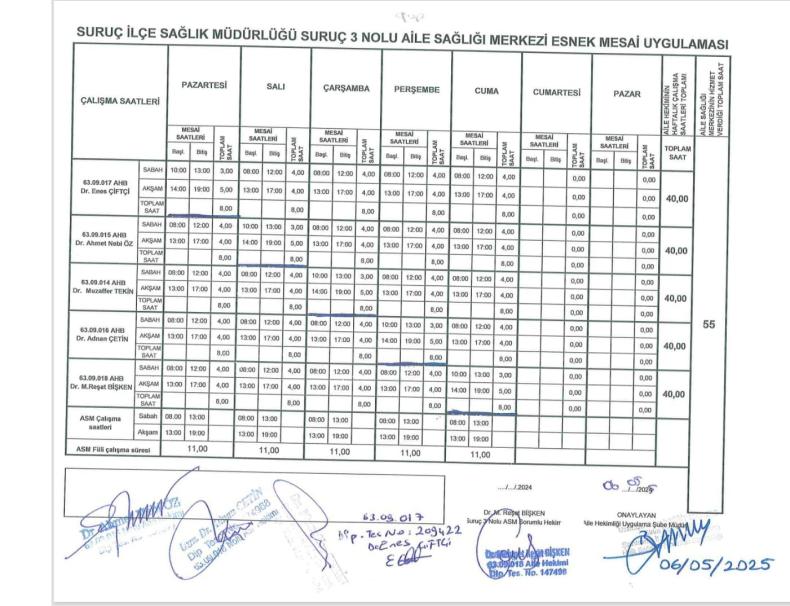 SURUÇ İLÇE SAĞLIK MÜDÜRLÜĞÜ SURUÇ 3 NOLU AİLE SAĞLIĞI MERKEZİ ESNEK MESAİ UYGULAMASI
ÇALIŞMA SAATLERİ PAZARTESİ SALI ÇARŞAMBA PERŞEMBE CUMA CUMARTESİ PAZAR AİLE HEKİMİNİN HAFTALIK ÇALIŞMA SAATLERİ TOPLAMI AİLE SAĞLIĞI MERKEZİNİN HİZMET VERDİĞİ TOPLAM SAAT
MESAİ SAATLERİ TOPLAM SAAT MESAİ SAATLERİ TOPLAM SAAT MESAİ SAATLERİ TOPLAM SAAT MESAİ SAATLERİ TOPLAM SAAT MESAİ SAATLERİ TOPLAM SAAT MESAİ SAATLERİ TOPLAM SAAT MESAİ SAATLERİ TOPLAM SAAT TOPLAM SAAT
Başl. Bitiş Başl. Bitiş Başl. Bitiş Başl. Bitiş Başl. Bitiş Başl. Bitiş Başl. Bitiş
63.09.017 AHB
Dr. Enes ÇİFTÇİ
SABAH 10:00 13:00 3,00 08:00 12:00 4,00 08:00 12:00 4,00 08:00 12:00 4,00 08:00 12:00 4,00 0,00 0,00
AKŞAM 14:00 19:00 5,00 13:00 17:00 4,00 13:00 17:00 4,00 13:00 17:00 4,00 13:00 17:00 4,00 0,00 0,00 40,00
TOPLAM SAAT 8,00 8,00 8,00 8,00 8,00 0,00 0,00
63.09.015 AHB
Dr. Ahmet Nebi ÖZ
SABAH 08:00 12:00 4,00 10:00 13:00 3,00 08:00 12:00 4,00 08:00 12:00 4,00 08:00 12:00 4,00 0,00 0,00
AKŞAM 13:00 17:00 4,00 14:00 19:00 5,00 13:00 17:00 4,00 13:00 17:00 4,00 13:00 17:00 4,00 0,00 0,00 40,00
TOPLAM SAAT 8,00 8,00 8,00 8,00 8,00 0,00 0,00
63.09.014 AHB
Dr. Muzaffer TEKİN
SABAH 08:00 12:00 4,00 08:00 12:00 4,00 10:00 13:00 3,00 08:00 12:00 4,00 08:00 12:00 4,00 0,00 0,00
AKŞAM 13:00 17:00 4,00 13:00 17:00 4,00 14:00 19:00 5,00 13:00 17:00 4,00 13:00 17:00 4,00 0,00 0,00 40,00
TOPLAM SAAT 8,00 8,00 8,00 8,00 8,00 0,00 0,00
55
63.09.016 AHB
Dr. Adnan ÇETİN
SABAH 08:00 12:00 4,00 08:00 12:00 4,00 08:00 12:00 4,00 10:00 13:00 3,00 08:00 12:00 4,00 0,00 0,00
AKŞAM 13:00 17:00 4,00 13:00 17:00 4,00 13:00 17:00 4,00 14:00 19:00 5,00 13:00 17:00 4,00 0,00 0,00 40,00
TOPLAM SAAT 8,00 8,00 8,00 8,00 8,00 0,00 0,00
63.09.018 AHB
Dr. M.Reşat BİŞKEN
SABAH 08:00 12:00 4,00 08:00 12:00 4,00 08:00 12:00 4,00 08:00 12:00 4,00 10:00 13:00 3,00 0,00 0,00
AKŞAM 13:00 17:00 4,00 13:00 17:00 4,00 13:00 17:00 4,00 13:00 17:00 4,00 14:00 19:00 5,00 0,00 0,00 40,00
TOPLAM SAAT 8,00 8,00 8,00 8,00 8,00 0,00 0,00
ASM Çalışma saatleri
Sabah 08.00 13:00 08:00 13:00 08:00 13:00 08:00 13:00 08:00 13:00
Akşam 13:00 19:00 13:00 19:00 13:00 19:00 13:00 19:00 13:00 19:00
ASM Fiili çalışma süresi 11,00 11,00 11,00 11,00 11,00
..../..../2024
Dr. M. Reşat BİŞKEN
Suruç 3 Nolu ASM Sorumlu Hekim
ONAYLAYAN
Aile Hekimliği Uygulama Şube Müdürü
63.09.017
Dip. Tes No: 209422
Dr Enes ÇİFTÇİ
63.09.018 Aile Hekimi
Dip/Tes. No. 147498
06/05/2025